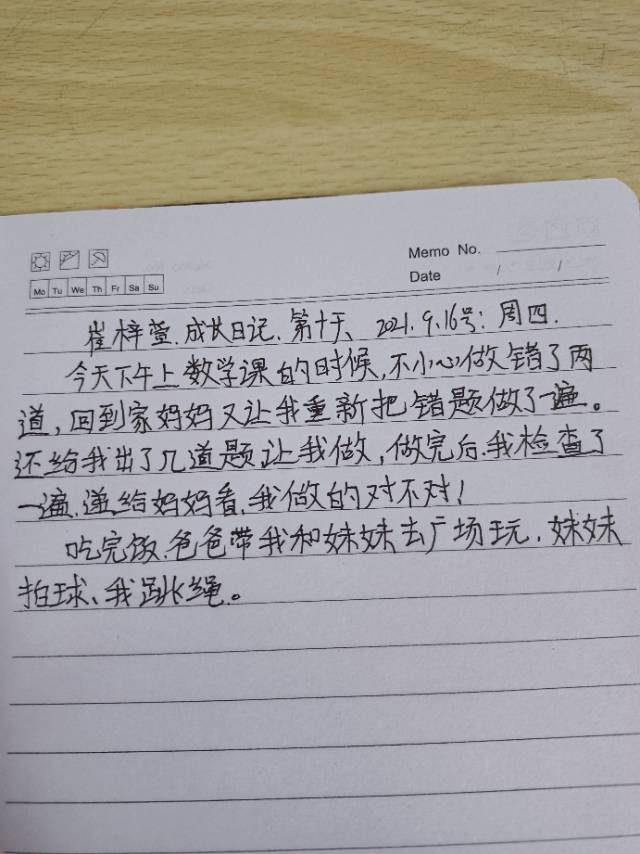 Memo No.
Date / /
Mo Tu We Th Fr Sa Su
崔梓萱.成长日记.第十天 2021.9.16号:周四.
今天下午上数学课的时候,不小心做错了两
道,回到家妈妈又让我重新把错题做了一遍。
还给我出了几道题让我做,做完后.我检查了
一遍.递给妈妈看.我做的对不对!
吃完饭.爸爸带我和妹妹去广场玩.妹妹
拍球、我跳绳。